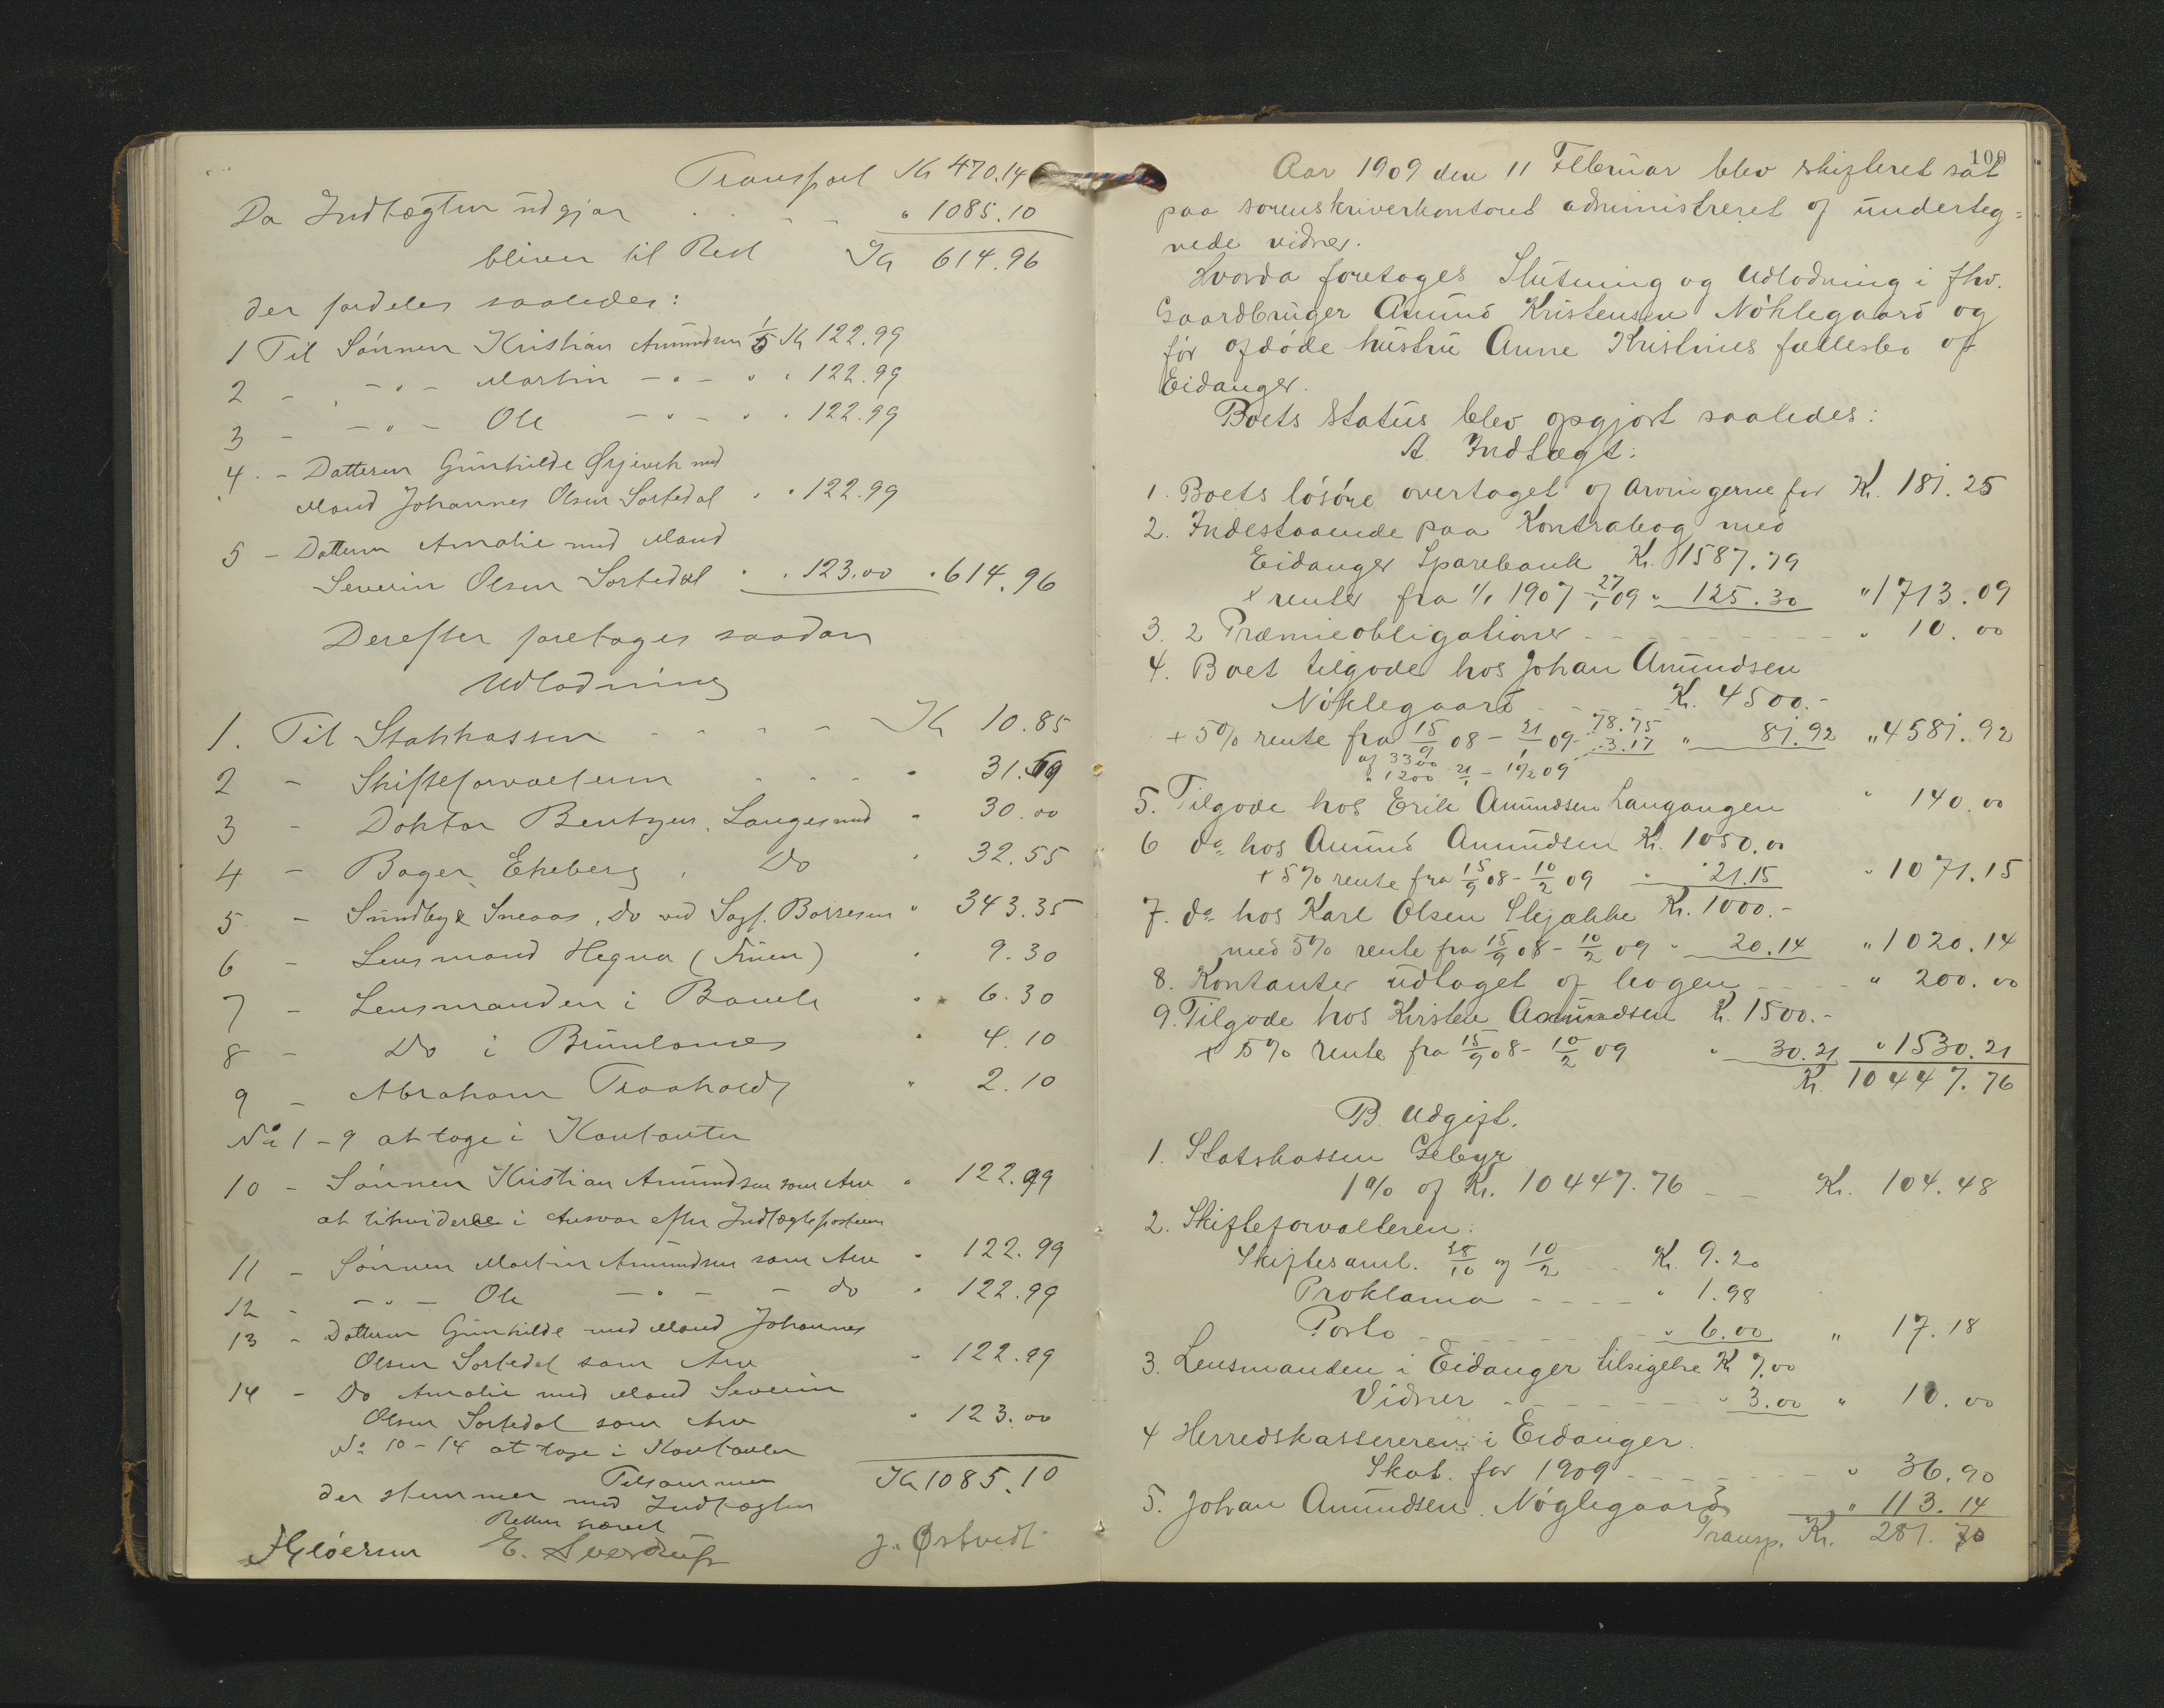 Transport Kr 470.14
Da Indtægten udgjør " 1085.10
bliver til Rest Kr 614.96
der fordeles saaledes:
1 Til Sønnen Kristian Amundsen 1/5 Kr 122.99
2 - - " - Martin - " - " " 122.99
3 - - " - Ole - " - " " 122.99
4. - Datteren Gunhilde med
Mand Johannes Olsen Sortedal " " 122.99
5 - Datteren Amalie med Mand
Severin Olsen Sortedal " " 123.00 " 614.96
Derefter foretages saadan
Udlodning
1. Til Statskassen - - - - Kr 10.85
2 - Skifteforvalteren - - - " 31.59
3 - Doktor Bentzen, Langesund " 30.00
4 - Bager Ekeberg, Do " 32.55
5 - Sundby & Sneaas, Do ved Sagf. Borresen " 343.35
6 - Lensmand Hegna (Fruen) " 9.30
7 - Lensmanden i Bamle " 6.30
8 - Do i Brunlanes " 4.10
9 - Abraham Traaholdt " 2.10
No 1-9 at tage i Kontanter
10 - Sønnen Kristian Amundsen som Arv " 122.99
at likvidere i Ansvar efter Indtægtsposten
11 - Sønnen Martin Amundsen som Arv " 122.99
12 - - " - Ole - " - - do " 122.99
13 - Datteren Gunhilde med Mand Johannes
Olsen Sortedal som Arv " 122.99
14 - Do Amalie med Mand Severin
Olsen Sortedal som Arv " 123.00
No 10-14 at tage i Kontanter
Tilsammen Kr 1085.10
der stemmer med Indtægten
Retten hævet
E. Sverdrup J. Østvedt
109
Aar 1909 den 11 Februar blev skifteret sat
paa sorenskriverkontoret administreret af underteg=
nede vidner.
Hvorda foretoges Slutning og Udlodning i fhv.
Gaardbruger Amund Kristensen Nøklegaard og
før afdøde hustru Anne Kristines fællesbo af
Eidanger.
Boets Status blev opgjort saaledes:
A. Indtægt:
1. Boets løsøre overtaget af Arvingerne for Kr. 181.25
2. Indestaaende paa Kontrabog med
Eidanger Sparebank Kr. 1587.79
+ renter fra 1/1 1907 - 27/1 09 " 125.30 " 1713.09
3. 2 Præmieobligationer - - - - " 10.00
4. Boet tilgode hos Johan Amundsen
Nøklegaard - - - Kr. 4500.-
+ 5% rente fra 15/9 08 - 21/1 09 78.75 3.17 " 81.92 " 4581.92
af 3300
" 1200 21/1 - 10/2 09
5. Tilgode hos Erik Amundsen Langangen " 140.00
6 do hos Amund Amundsen Kr. 1050.00
+ 5% rente fra 15/9 08 - 10/2 09 " 21.15 " 1071.15
7. do hos Karl Olsen Skjække Kr. 1000.-
med 5% rente fra 15/9 08 - 10/2 09 " 20.14 " 1020.14
8. Kontanter udtaget af bogen - - - - " 200.00
9. Tilgode hos Kirsten Amundsen Kr. 1500.-
+ 5% rente fra 15/9 08 - 10/2 09 " 30.21 " 1530.21
Kr. 10447.76
B. Udgift.
1. Statskassen Gebyr
1% af Kr. 10447.76 - - Kr. 104.48
2. Skifteforvalteren:
Skiftesaml. 28/10 og 10/2 - - Kr. 9.20
Proklama - - - - " 1.98
Porto - - - - - - " 6.00 " 17.18
3. Lensmanden i Eidanger tilsigelse Kr 7.00
Vidner - - - - - - " 3.00 " 10.00
4 Herredskassereren i Eidanger.
Skat for 1909 - - - - - - " 36.90
5. Johan Amundsen Nøglegaard " 113.14
Transp. Kr. 281.70